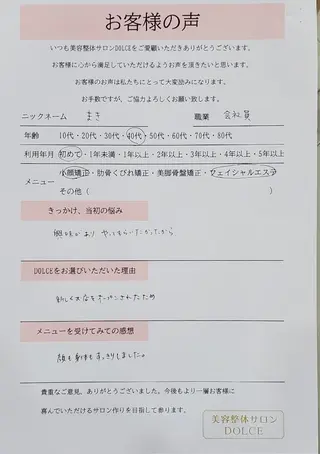 お客様の声
いつも美容整体サロンDOLCEをご愛顧いただきありがとうございます。
お客様に心から満足していただけるようお声を頂きたいと思います。
お客様のお声は私たちにとって大変励みになります。
お手数ですが、ご協力よろしくお願い致します。
ニックネーム まき 職業 会社員
年齢 10代・20代・30代・40代・50代・60代・70代・80代
利用年月 初めて・1年未満・1年以上・2年以上・3年以上・4年以上・5年以上
メニュー 小顔矯正・肋骨くびれ矯正・美脚骨盤矯正・フェイシャルエステ
その他（
きっかけ、当初の悩み
興味があり やってもらいたかったから
DOLCEをお選びいただいた理由
新しくお店をオープンされたため
メニューを受けてみての感想
顔も身体もすっきりしました。
貴重なご意見、ありがとうございました。今後もより一層お客様に
喜んでいただけるサロン作りを目指して参ります。
美容整体サロン
DOLCE